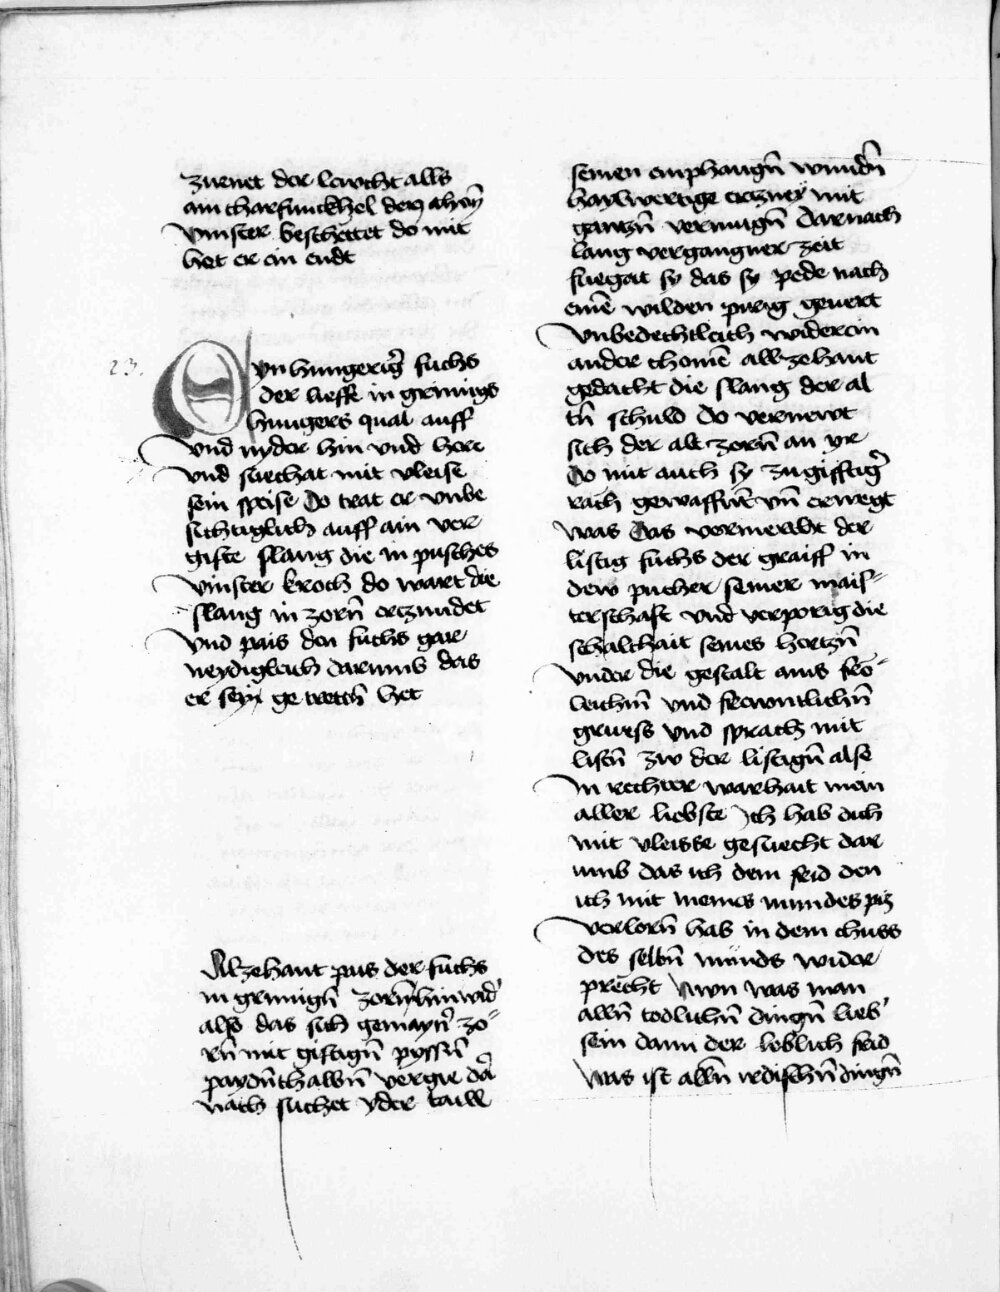 zurnet der levcht alls
ain charfunckhel den ahin
vinster beschettet do mit
het er ein endt
23.
Eyn hungerig̉ fuchs
der lieffe in grimigs
hungers qual auff
vnd nyder hin vnd here
vnd suechat mit vleise
sein speise Do trat er vnbe
sichtiglich auff ain ver
gifte slang die in pusches
vinster kroch do wart die
slang in zorn̄ erczundet
vnd pais den fuchs gar
neydigleich darumb das
er seyn ge tretth̄ het
Alzehant pais der fuchs
in grimigh̄ zorn̄ hin wid̉
also das sich gemayn̄
rn̄ mit giftign̄ pyssn̄
payden̄thalbn̄ vergie da
nach suchet yder taill
seinen emphangn̄ wundn̄
haylwertige erczney mit
gantzn̄ vermugn̄ Darnach
lang vergangner zeit
fuegat sy das sy pede nach
eine̅ wilden purig geuert
Vnbedechtleich widerein
ander chome̅ allzehant
gedacht die slang der al
tn̄ schuld Do vernewt
sich der alt zorn̄ an yr
Do mit auch sy zu giftig̉
rach gewaffnt̄ vn̄ erwegt
was Das vermerckt der
listig fuchs der graiff in
dew pucher seiner mais⸗
terschaft vnd verporig die
schalkhait seines hertzn̄
vnder die gestalt ains fro⸗
leichn̄ vnd frewntlichn̄
gruess vnd sprach mit
listn̄ zw der listign̄ alse
In rechter warhait mein
aller liebste Ich hab dich
mit vleisse gesuecht dar
umb das ich dem frid den
ich mit meines mundes pis
verlorn̄ hab in dem chuss
des selbn̄ munds wider
precht Nwn was man
alln̄ todlichn̄ dingn̄ lieb̉
sein dann der loblich frid
Was ist alln̄ irdischn̄ dingn̄